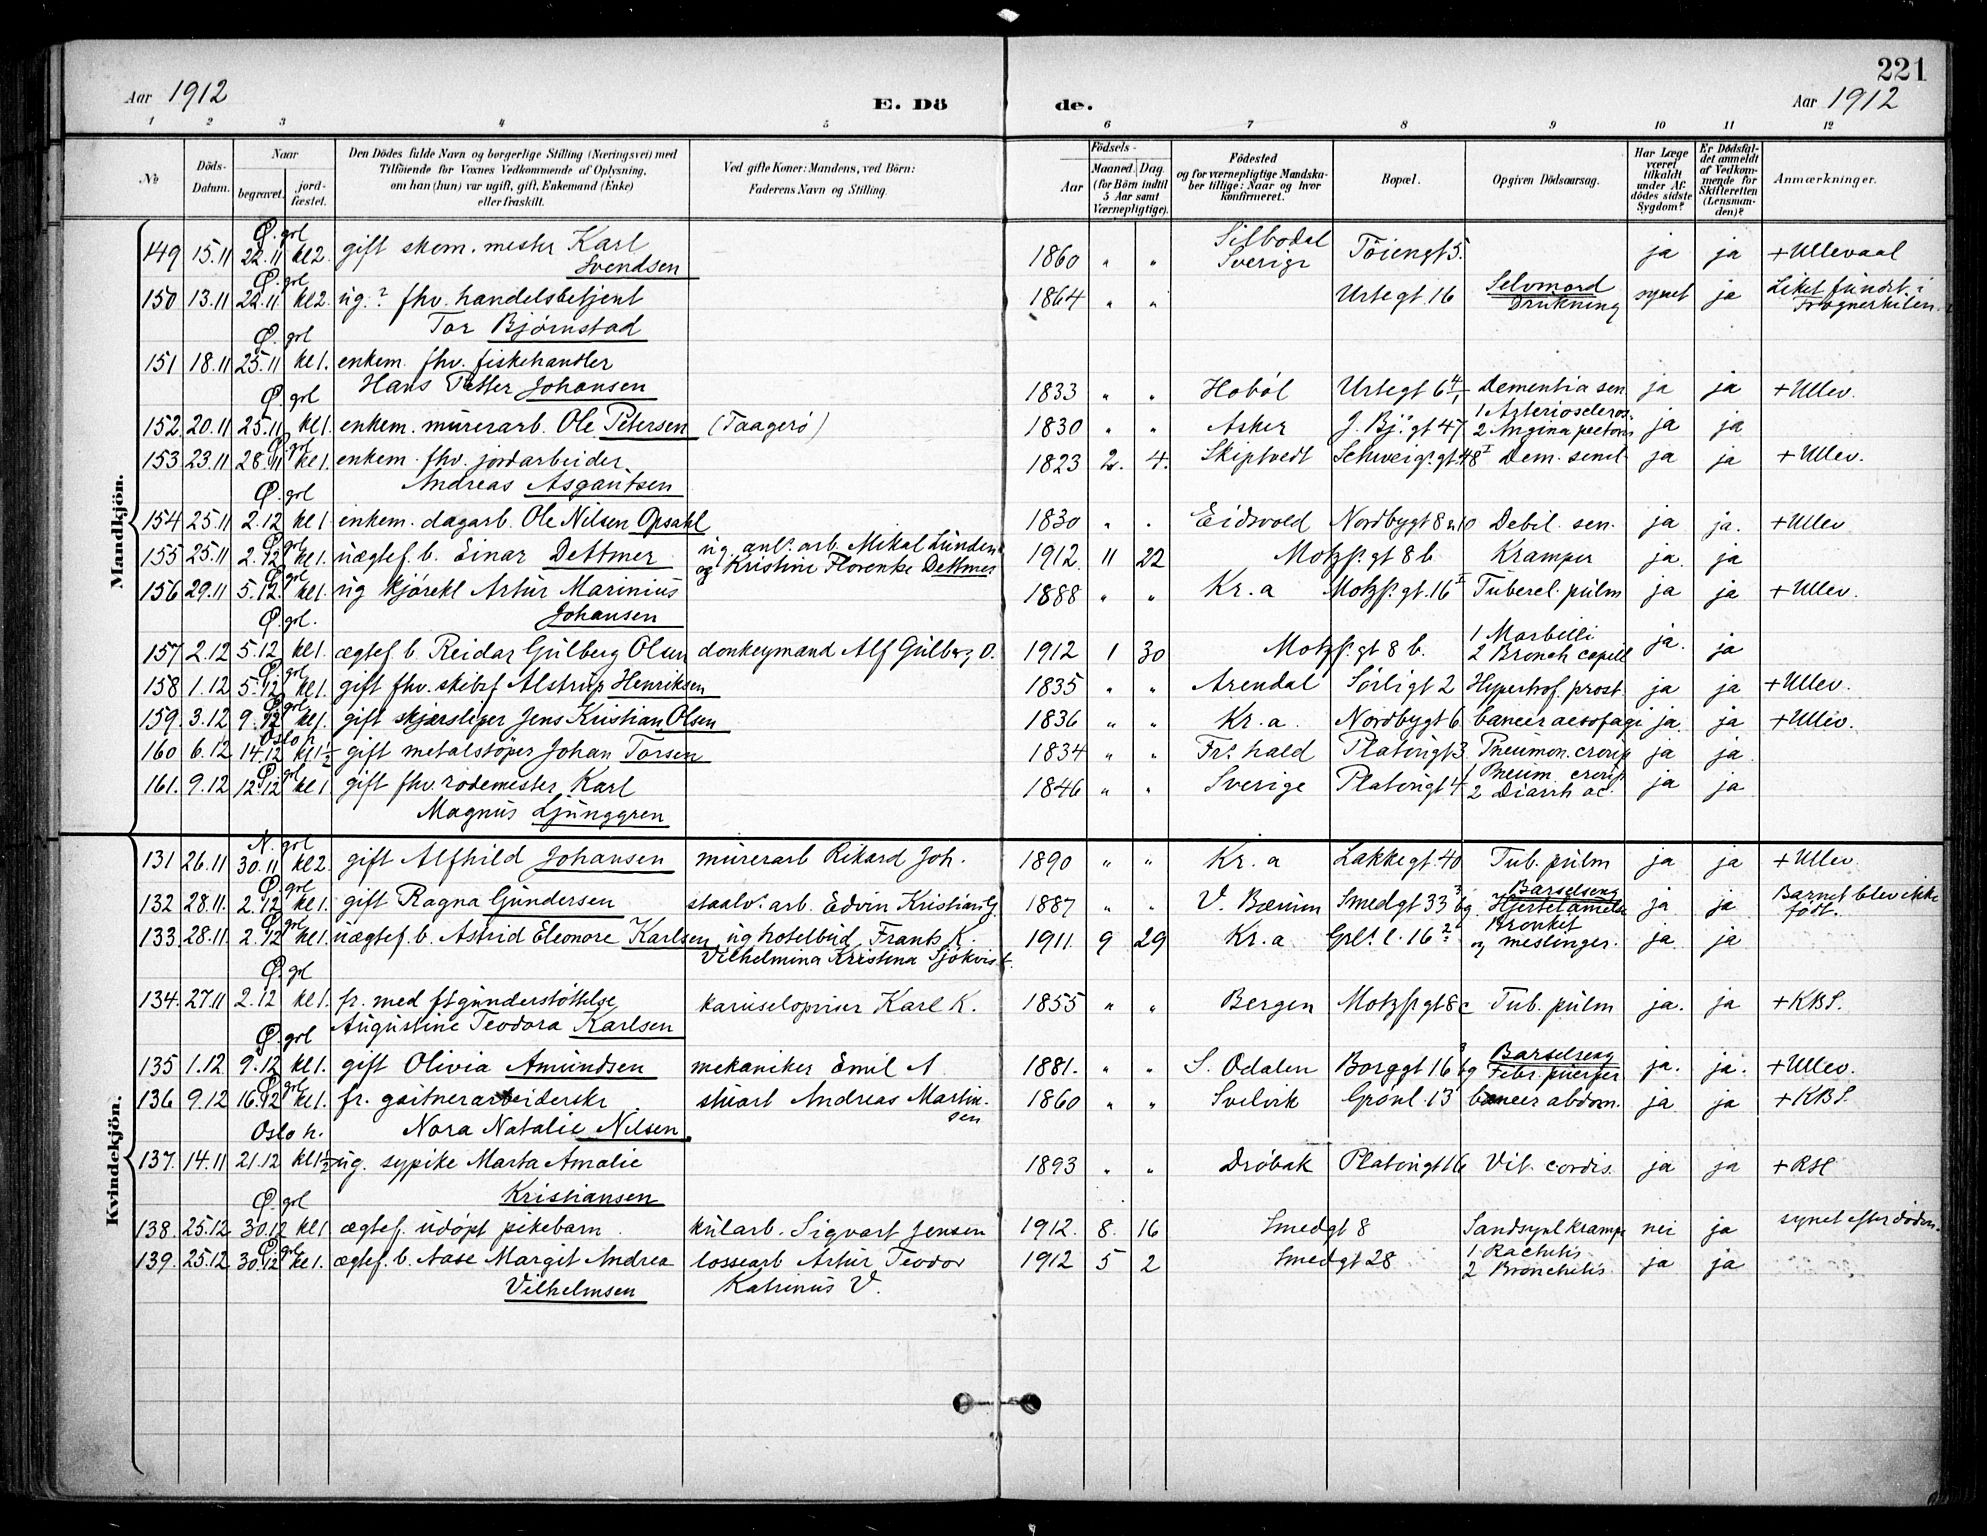 221
Aar 1912 E. Dö de. Aar 1912
1 2 3 4 5 6 7 8 9 10 11 12
№ Döds-Datum. Naar begravet. jord-fæstet. Den Dödes fulde Navn og borgerlige Stilling (Næringsvei) med Tilföiende for Voxnes Vedkommende af Oplysning, om han (hun) var ugift, gift, Enkemand (Enke) eller fraskilt. Ved gifte Koner: Mandens, ved Börn: Faderens Navn og Stilling. Födsels- Aar Maaned. Dag. (for Börn indtil 5 Aar samt Værnepligtige). Födested og for værnepligtige Mandskaber tillige: Naar og hvor konfirmeret. Bopæl. Opgiven Dödsaarsag. Har Læge været tilkaldt under Afdödes sidste Sygdom? Er Dödsfaldet anmeldt af Vedkommende for Skifteretten (Lensmanden)? Anmærkninger.
Mandkjön.
Ø. grl
149 15.11 22.11 kl 2. gift skom. mester Karl Svendsen 1860 " " Silbodal Sverige Töiengt 5. ja ja + Ullevaal
Ø. grl
150 13.11 22.11 kl 2. ug.? fhv. handelsbetjent Tor Bjørnstad 1864 " " Urtegt. 16 Selvmord Drukning synet ja Liket fundet i Frognerkilen.
Ø. grl
151 18.11 25.11 kl 1. enkem. fhv. fiskehandler Hans Petter Johansen 1833 " " Hobøl Urtegt 6 Dementia sen. ja ja + Ullev.
Ø. grl
152. 20.11 25.11 kl 1. enkem. murerarb. Ole Petersen (Taagerø) 1830 " " Asker J. Bj. gt 47 1 Arterioscleros. 2 Angina pectoris ja ja
Ø. grl
153 23.11 28.11 kl 1. enkem. fhv. jordarbeider Andreas Asgautsen 1823 2. 4. Skiptvedt Schweigs. gt. 48 I Dem. senil ja ja + Ullev.
Ø. grl
154 25.11 2.12 kl 1 enkem. dagarb. Ole Nilsen Opsahl 1830 " " Eidsvold Nordbygt 8 n 10 Debil. sen. ja ja. + Ullev
Ø. grl
155 25.11 2.12 kl 1. uægtef. b. Einar Dettmer ug. anl. arb. Mikal Lunden og Kristine Florentse Dettmer 1912. 11 22 Motzf. gt 8 b. Kramper ja. ja
Ø. grl
156 29.11 5.12. kl 1. ug kjørekl Artur Marinius Johansen 1888 " " Kr. a Motzf. gt. 16 I Tubercl. pulm ja ja + Ullev.
Ø. grl.
157 2.12 5.12 kl 1. ægtef. b. Reidar Gulberg Olsen donkeymand Alf Gulberg O. 1912 1 30 Motzf. gt 8 b. 1 Morbilli 2 Bronch. capill ja. ja
Ø. grl
158 1.12 5.12 kl 1. gift fhv. skibsf Alstrup Henriksen 1835 " " Arendal Sørligt 2 Hypertrof. prost. ja ja + Ullev.
Ø. grl
159. 3.12 9.12 kl 1. gift skjærsliper Jens Kristian Olsen 1836 " " Kr. a. Nordbygt 6 Cancer aesofagi ja. ja + Ullev.
Oslo h.
160 6.12 14.12 kl 1½ gift metalstøper Johan Torsen 1834 " " Fr. hald Platougt 3. Pneumon. croup ja ja.
Ø. grl
161. 9.12 12.12 kl 1. gift fhv. rodemester Karl Magnus Ljunggren 1846 " " Sverige Platougt 4 1 Pneum. croup. 2 Diarrh ac. ja ja
Kvindekjön.
N. grl
131 26.11 30.11 kl 2 gift Alfhild Johansen murerarb Rikard Joh. 1890 " " Kr. a Lakkegt. 40 Tub. pulm ja ja + Ullev.
Ø. grl
132 28.11. 2.12 kl 1. gift Ragna Gundersen staalv. arb. Edvin Kristian G. 1887 " " V. Bærum Smedgt 33 Barselseng og Hjertelamelse ja ja Barnet blev ikke født.
Ø. grl
133 28.11. 2.12 kl 1. uægtef. b. Astrid Eleonore Karlsen ug hotelbud Frants K. Vilhelmina Kristina Sjøkvist. 1911. 9 29 Kr. a Grl. l. 16 Bronket og meslinger. ja ja
Ø. grl
134. 27.11 2.12 kl 1. fr. med ftgunderstøttelse Augustine Teodora Karlsen karuseloprier Karl K. 1855 " " Bergen Motzf. gt 8 c Tub. pulm ja. ja + KBS.
Ø. grl
135 1.12 9.12 kl 1. gift Olivia Amundsen mekaniker Emil A 1881. " " S. Odalen Borggt 16 Barselseng og Febr. puerper ja. ja. + Ullev.
Ø. grl
136 9.12 16.12 kl 1. fr. gartnerarbeiderske Nora Natalie Nilsen stuart Andreas Martinsen 1860 " " Svelvik Grønl. 13 Cancer abdom. ja ja + KBS.
Oslo h.
137. 14.11 21.12 kl 1½ ug. sypike Marta Amalie Kristiansen 1893 " " Drøbak Platougt 16 Vit. cordis. ja ja + RH
Ø. grl
138. 25.12. 30.12 kl 1 ægtef. udøpt pikebarn kularb. Sigvart Jensen 1912. 8. 16 Smedgt 8 Sandsynl krampe nei ja synet efter døden.
Ø. grl
139. 25.12 30.12 kl 1. ægtef. b. Aase Margit Andrea Vilhelmsen lossearb Artur Teodor Katrinus V. 1912 5 2 Smedgt 28 1. Rachitis 2 Bronchitis. ja ja